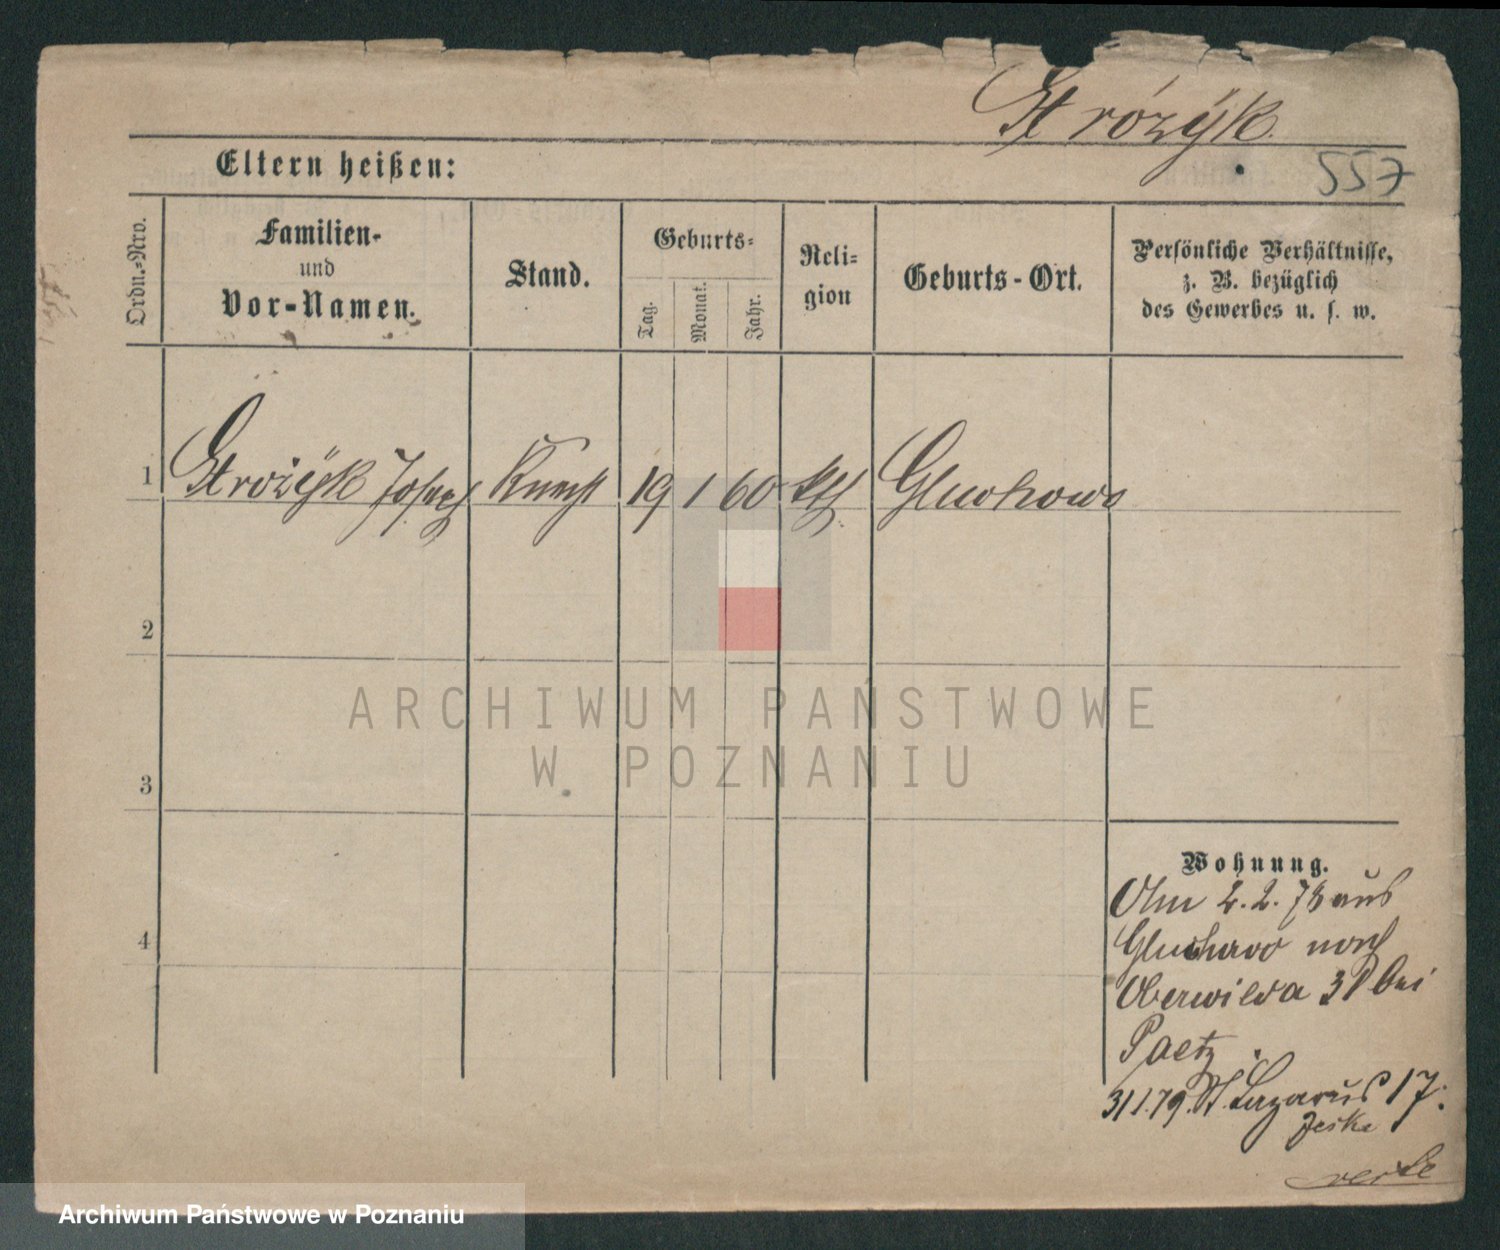 Strózÿk.
557
Eltern heißen:
Ordn.-Nro.
Familien-
und
Vor-Namen.
Stand.
Geburts-
Tag.
Monat.
Jahr.
Reli-
gion
Geburts-Ort.
Persönliche Verhältnisse,
z. B. bezüglich
des Gewerbes u. s. w.
1 Strozÿk Joseph Knecht 19 1 60 kth. Gluchowo
2
3
4
Wohnung.
Am 2. 2. 78 aus
Gluchowo nach
Oberwilda 31 bei
Paetz.
31/1.79. St. Lazarus 17.
Jeske
ARCHIWUM PAŃSTWOWE
W POZNANIU
Archiwum Państwowe w Poznaniu